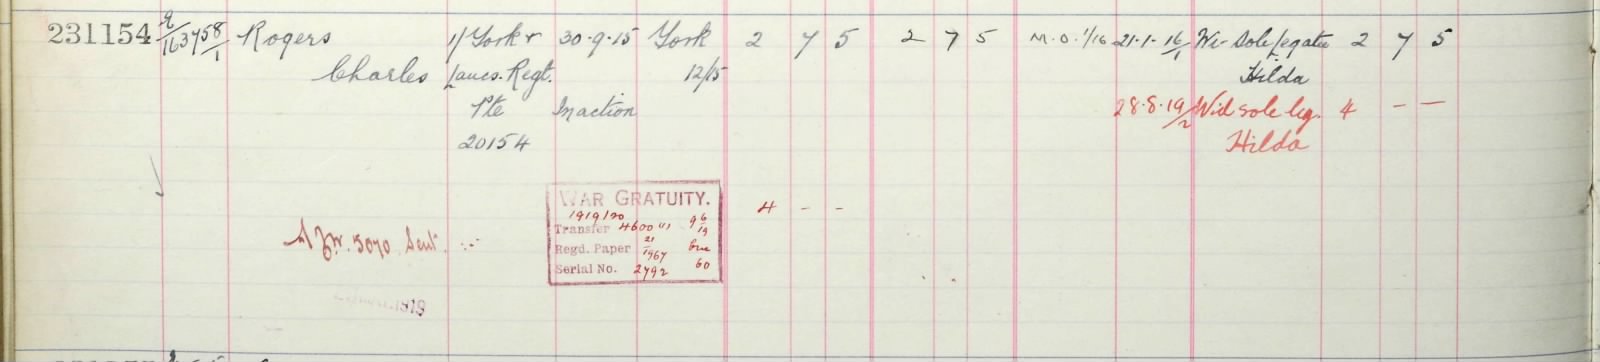 231154 9/163758/1 Rogers 1/York & 30.9.15 York 2 7 5 2 7 5 M.O. 1/16 21.1.16/1 Wi- Sole Legatee 2 7 5
Charles Lancs. Regt. 12/15 Hilda
Pte In action 28.8.19/2 Wid sole leg. 4 - -
20154 Hilda
WAR GRATUITY. 4 - -
1919/20
Transfer 4600 9 6/19
5070 Sent.
Regd. Paper 21/1967
Serial No. 2792 60
1919